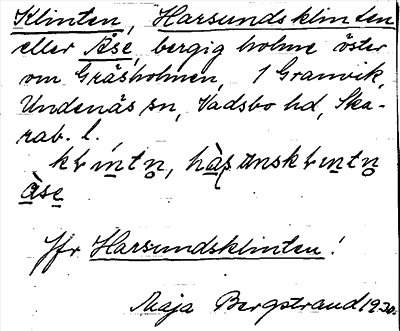 Klinten, Harsundsklinten
eller Åse, bergig holme öster
om Gräsholmen, 1 Granvik,
Undenäs sn, Vadsbo hd, Ska-
rab. l.
Jfr Harsundsklinten!
Maja Bergstrand 1930.